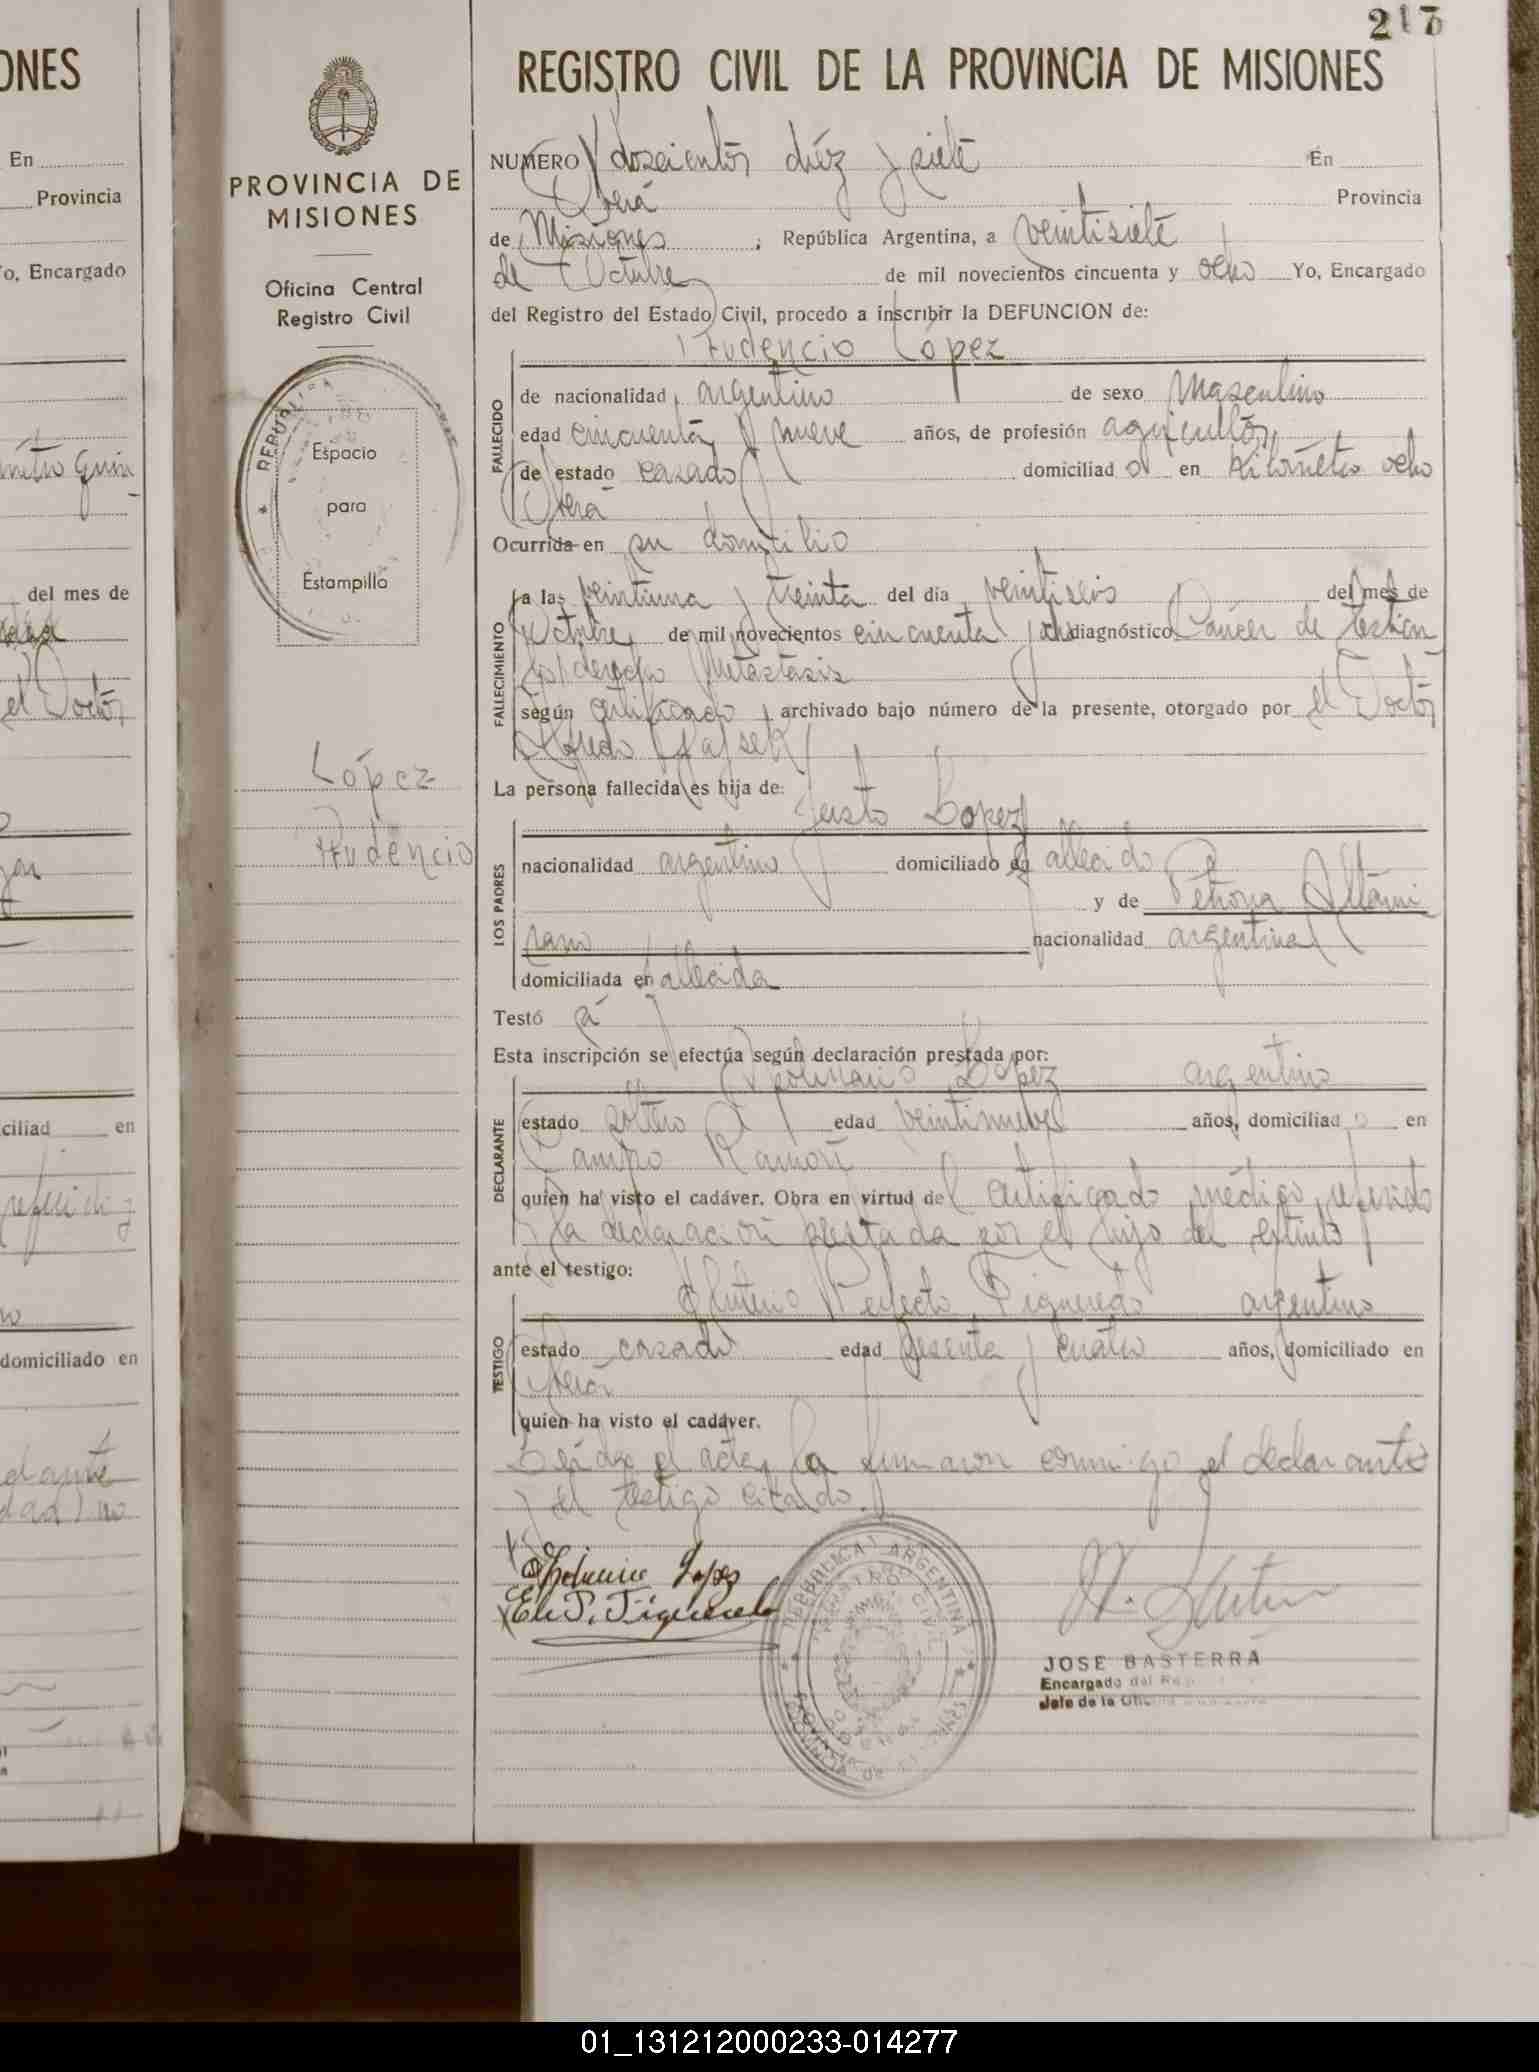 217
REGISTRO CIVIL DE LA PROVINCIA DE MISIONES
NUMERO doscientos diéz y siete En
Oberá Provincia
de Misiones ; República Argentina, a veintisiete
de Octubre de mil novecientos cincuenta y ocho Yo, Encargado
del Registro del Estado Civil, procedo a inscribir la DEFUNCION de:
Prudencio López
FALLECIDO
de nacionalidad argentino de sexo Masculino
edad cincuenta y nueve años, de profesión agricultor
de estado casado domiciliad o en kilómetro ocho
Oberá
Ocurrida en su domicilio
FALLECIMIENTO
a las veintiuna y treinta del dia veintiseis del mes de
Octubre de mil novecientos cincuenta y ocho diagnóstico Cáncer de
derecho Metástasis
según certificado archivado bajo número de la presente, otorgado por el Doctor
Alfredo
La persona fallecida es hija de:
Justo Lopez
LOS PADRES
nacionalidad argentino domiciliado en fallecido
y de Petrona Altami
rano nacionalidad argentina
domiciliada en fallecida
Testó
Esta inscripción se efectúa según declaración prestada por:
Apolinario López argentino
DECLARANTE
estado soltero edad veintinueve años, domiciliad o en
Campo Ramón
quien ha visto el cadáver. Obra en virtud del certificado médico referido
y la declaración prestada por el hijo del extinto
ante el testigo:
Eleuterio Perfecto Figueredo argentino
TESTIGO
estado casado edad sesenta y cuatro años, domiciliado en
Oberá
quien ha visto el cadáver.
Leída el acta, la firmaron conmigo el declarante
y el testigo citado.
Apolinario Lopez
El. P. Figueredo
REPUBLICA ARGENTINA
REGISTRO CIVIL
JOSE BASTERRA
Encargado del
Jefe de la
PROVINCIA DE
MISIONES
Oficina Central
Registro Civil
REPUBLICA
Espacio
para
Estampilla
López
Prudencio
ONES
En
Provincia
Yo, Encargado
del mes de
el Doctor
ciliad en
domiciliado en
01_131212000233-014277